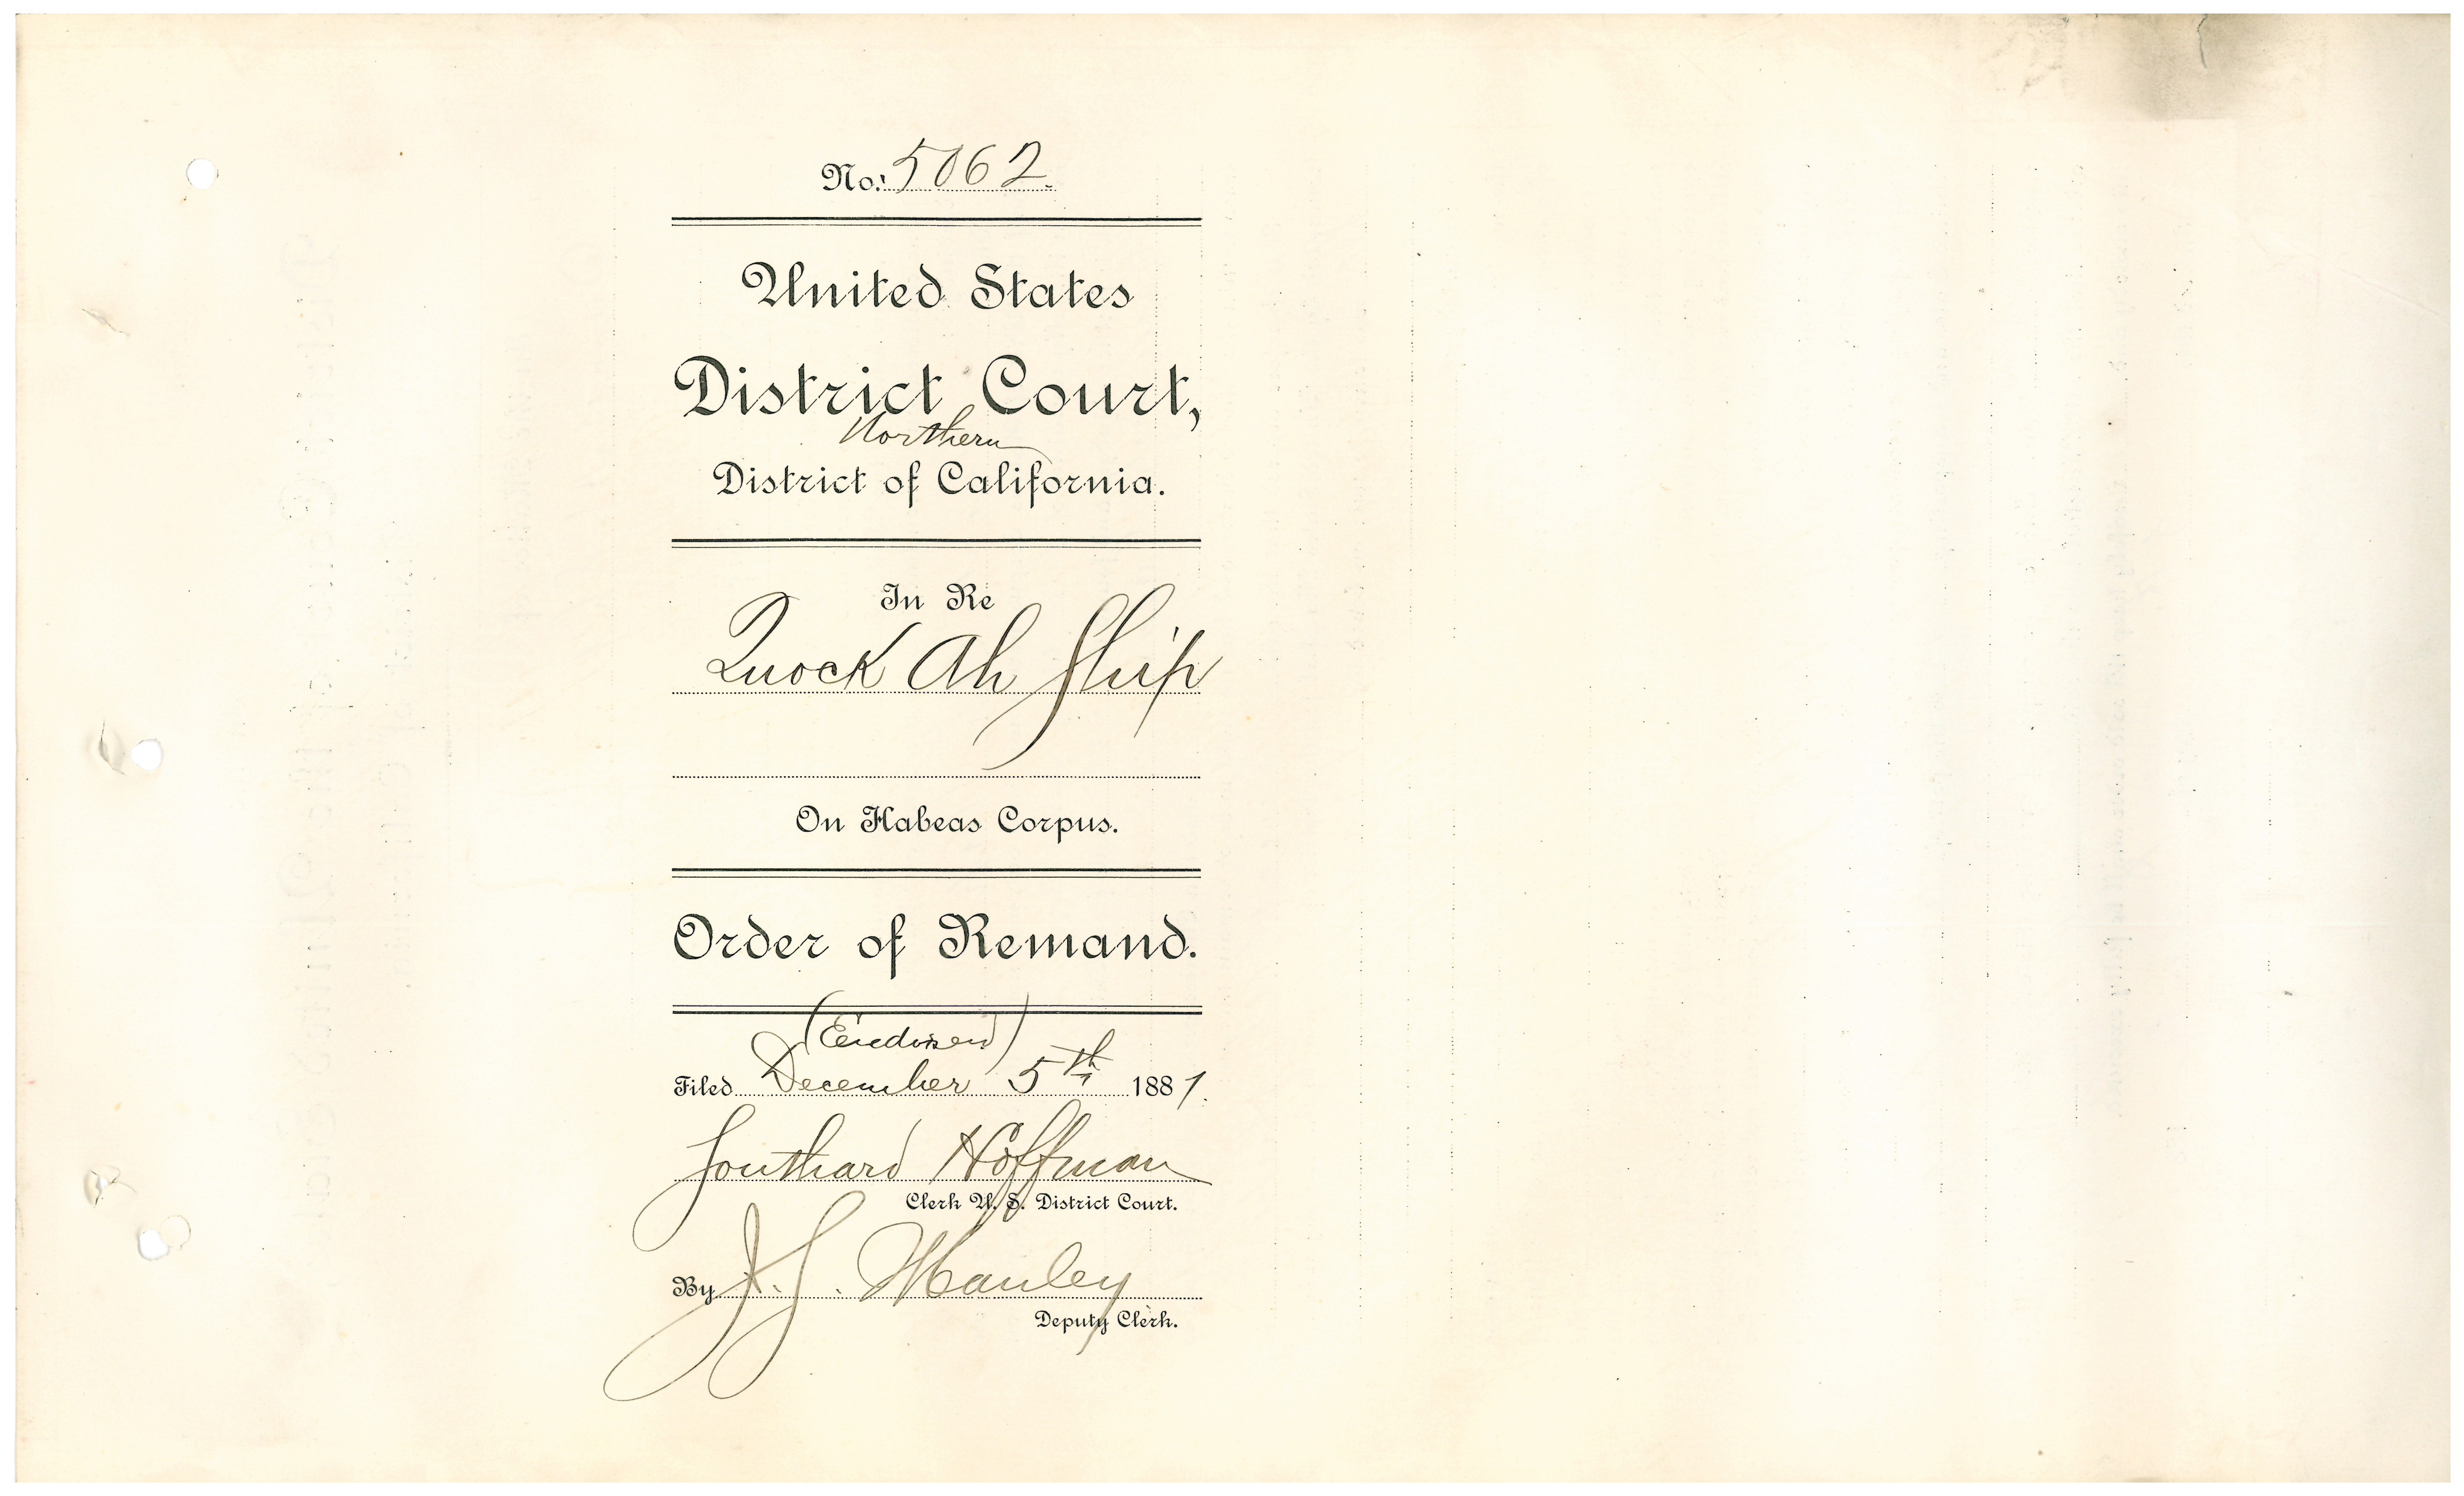 No. 5062.
United States
District Court,
Northern
District of California.
In Re
Quock Ah Ship
On Habeas Corpus.
Order of Remand.
(Endorsed)
Filed December 5th 1887.
Southard Hoffman
Clerk U. S. District Court.
By J. S. Manley
Deputy Clerk.